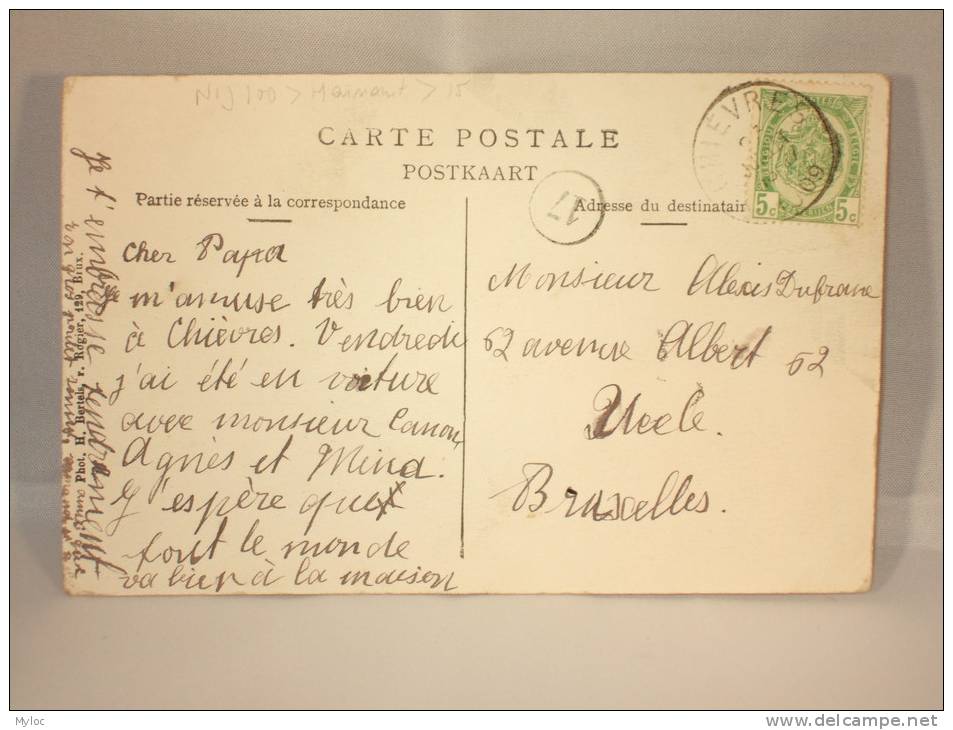 NIJ 100 > Hainaut > 15
CARTE POSTALE
POSTKAART
Partie réservée à la correspondance
Cher Papa
Je m'amuse très bien
à Chièvres. Vendredi
j'ai été en voiture
avec monsieur Canon,
Agnès et Mina.
J'espère que
tout le monde
va bien à la maison
Je t'embrasse tendrement
ton gros
Phot. H. Bertels, r. Rogier, 129, Brux.
17
Adresse du destinatair
Monsieur Alexis Dufrane
62 avenue Albert 62
Uccle.
Bruxelles.
CHIEVRES
09
BELGIQUE
BELGIË
5c 5c
Myloc
www.delcampe.net